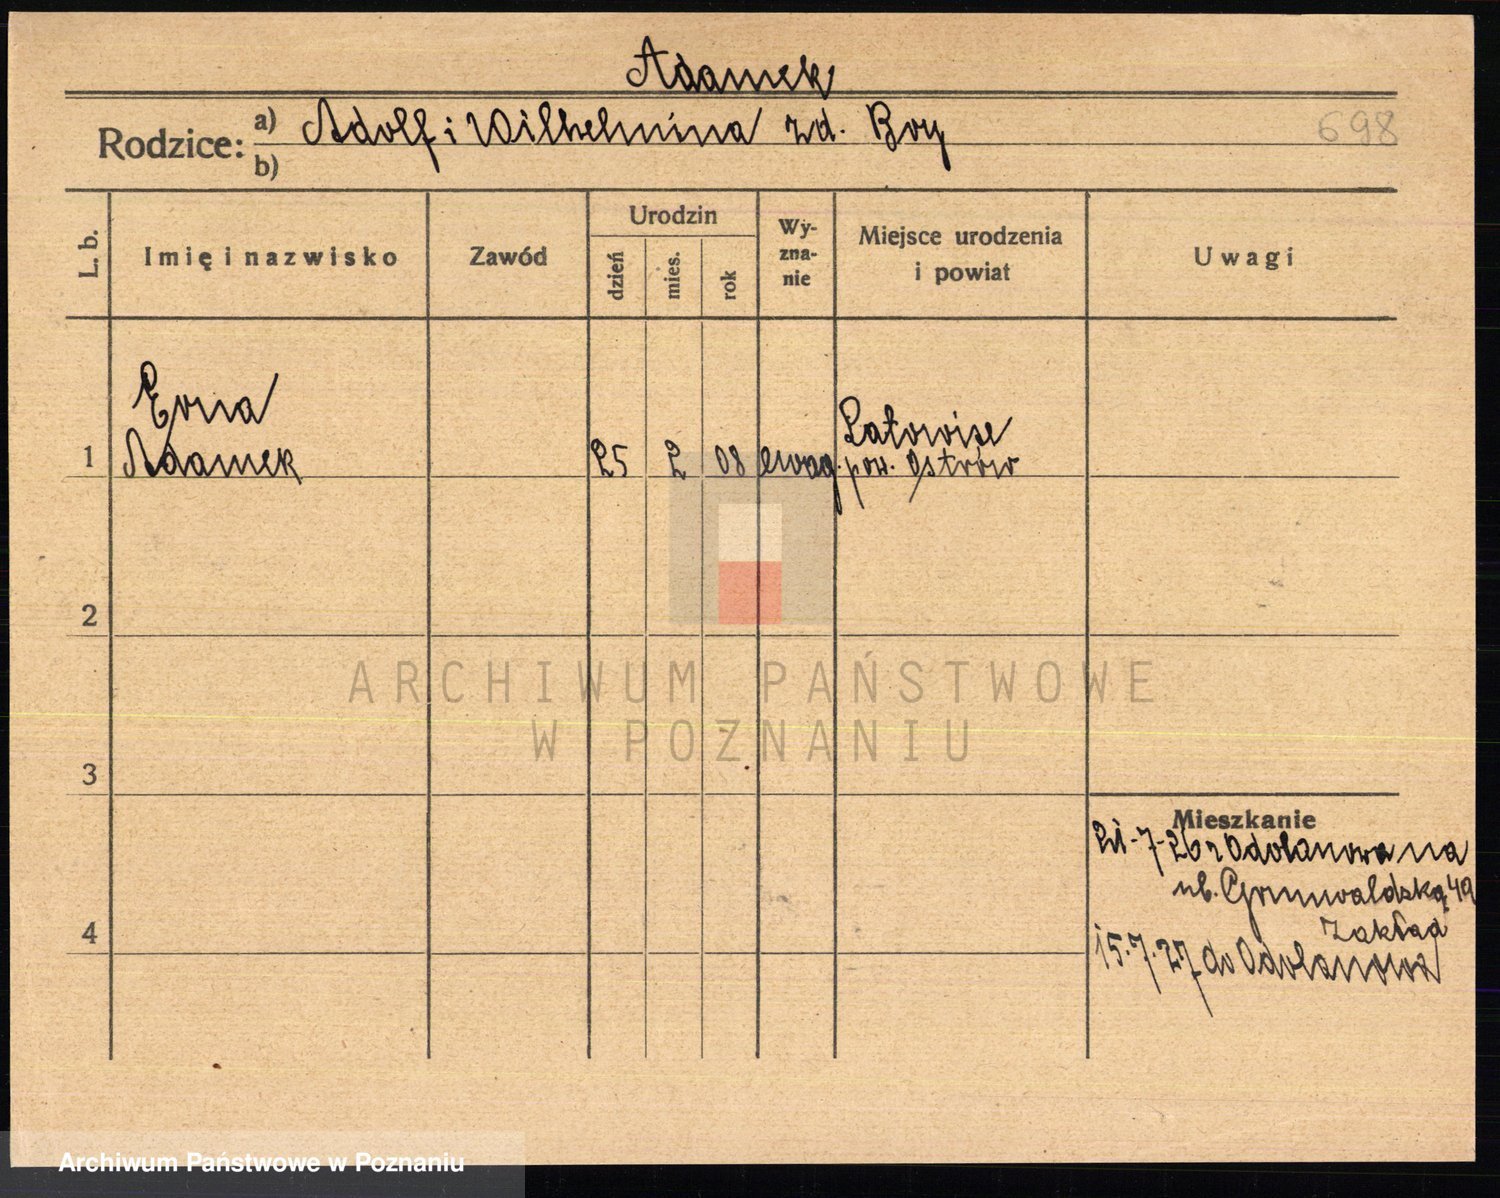 Adamek
Rodzice: a) Adolf i Wilhelmina zd. Boy
b)
698
L. b.
Imię i nazwisko
Zawód
Urodzin
dzień
mies.
rok
Wy-
zna-
nie
Miejsce urodzenia
i powiat
Uwagi
Erna
1 Adamek 25 2 08 ewag. pow. Ostrów
Latowice
2
3
4
Mieszkanie
21-7-26 r Odolanowa na
ul. Grunwaldzką 49
Zakład
15.7.27 do Odolanowa
ARCHIWUM PAŃSTWOWE
W POZNANIU
Archiwum Państwowe w Poznaniu